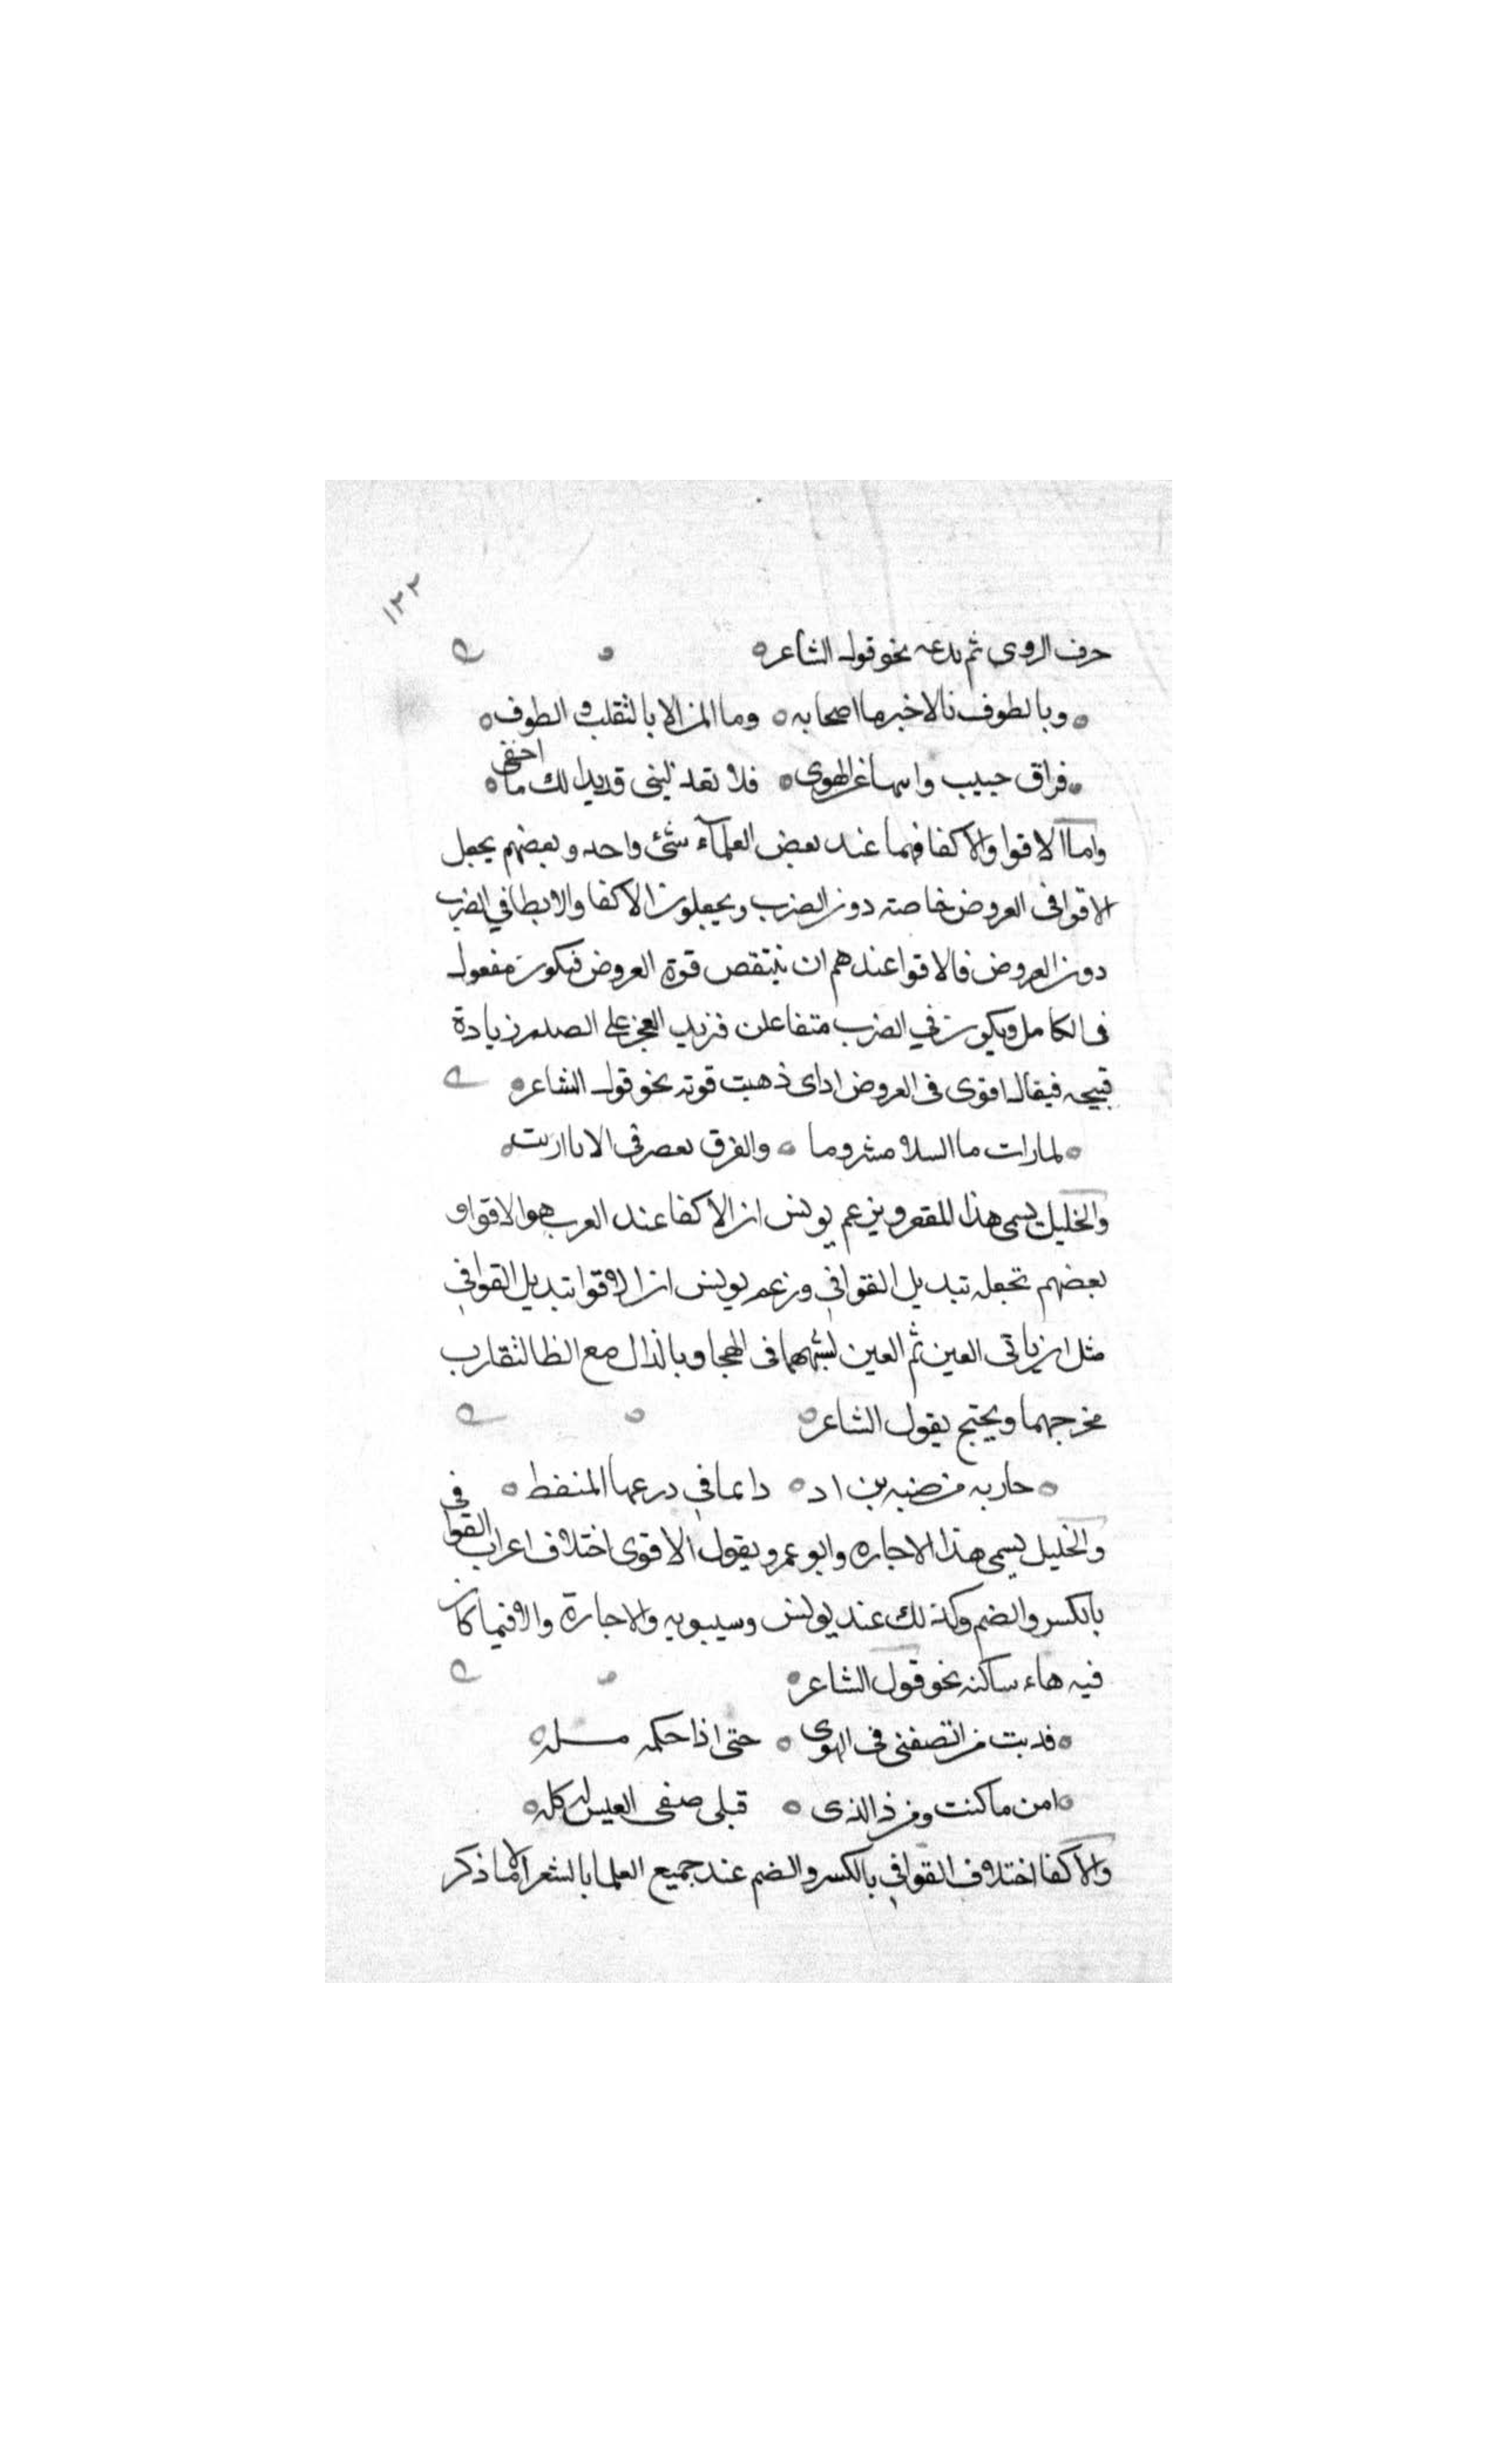 ١٢٢
حرف الروى ثم يدعه نحو قول الشاعر
وبالطوف نالا خير ما اصحابه وما المرالا بالتقلب و الطوف
فراق حبيب وانتهاعن الهوى فلا تعدلينى قد بدا لك ما اخفى
واما الاقوا والاكفا فهما عند بعض العلمآء شئ واحد وبعضهم يجعل
الاقوا فى العروض خاصة دون الضرب ويجعلون الاكفا والايطا في الضرب
دون العروض فالاقوا عندهم ان ينتقص قوة العروض فيكون مفعول
فى الكامل ويكون في الضرب متفاعلن فيزيد العجز على الصدر زيادة
قبيحه فيقال اقوى فى العروض اى اذهبت قوته نحو قول الشاعر
لما رات ما السلا مشروما والفرق يعصر فى الانا ارنت
والخليل يسمى هذا المقعر ويزعم يونس ان الاكفا عند العرب هو الاقوا و
بعضهم تجعله تبديل القوافي وزعم يونس ان الاقوا تبديل القوافي
مثل ان ياتى العين ثم الغين لشبههما فى الهجا وبالذال مع الظا لتقارب
مخرجهما ويحتج بقول الشاعر
جاريه من ضبه بن اد دا عما في درعها المنغط
والخليل يسمى هذا الاجاره وابو عمرو يقول الاقوى اختلاف اعراب القوافى
بالكسر والضم وكذلك عند يونس وسيبويه والاجارة والا فيما كان
فيه هاء ساكنه نحو قول الشاعر
فديت من انصفنى فى الهوى حتى اذا حكمه مله
امن ما كنت ومن ذا الذى قبلى صفى العيش له كله
والاكفا اختلاف القوافي بالكسر والضم عند جميع العلما بالشعر الا ما ذكر